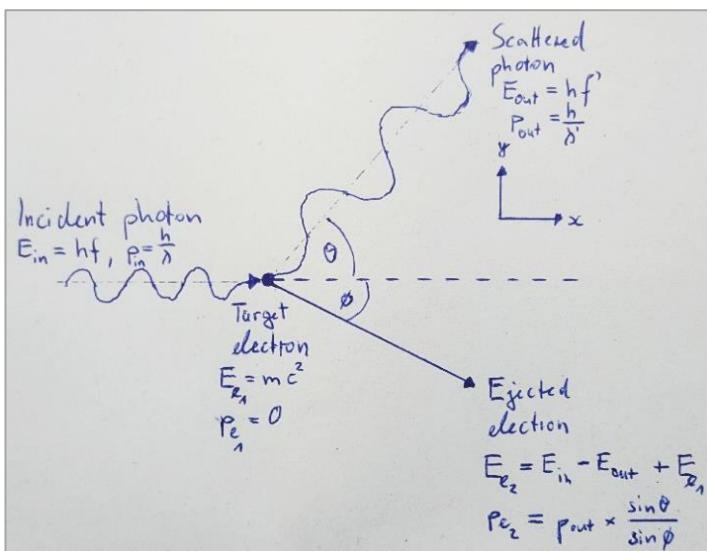 Scattered
photon
E_out = hf'
p_out = h/λ'
y
x
Incident photon
E_in = hf, p_in = h/λ
θ
ϕ
Target
electron
E_e₁ = mc²
p_e₁ = 0
Ejected
electron
E_e₂ = E_in - E_out + E_e₁
p_e₂ = p_out × sinθ/sinϕ